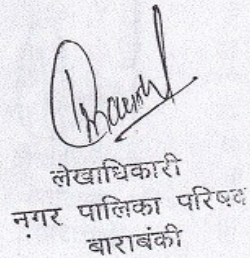 लेखाधिकारी
नगर पालिका परिषद
बाराबंकी